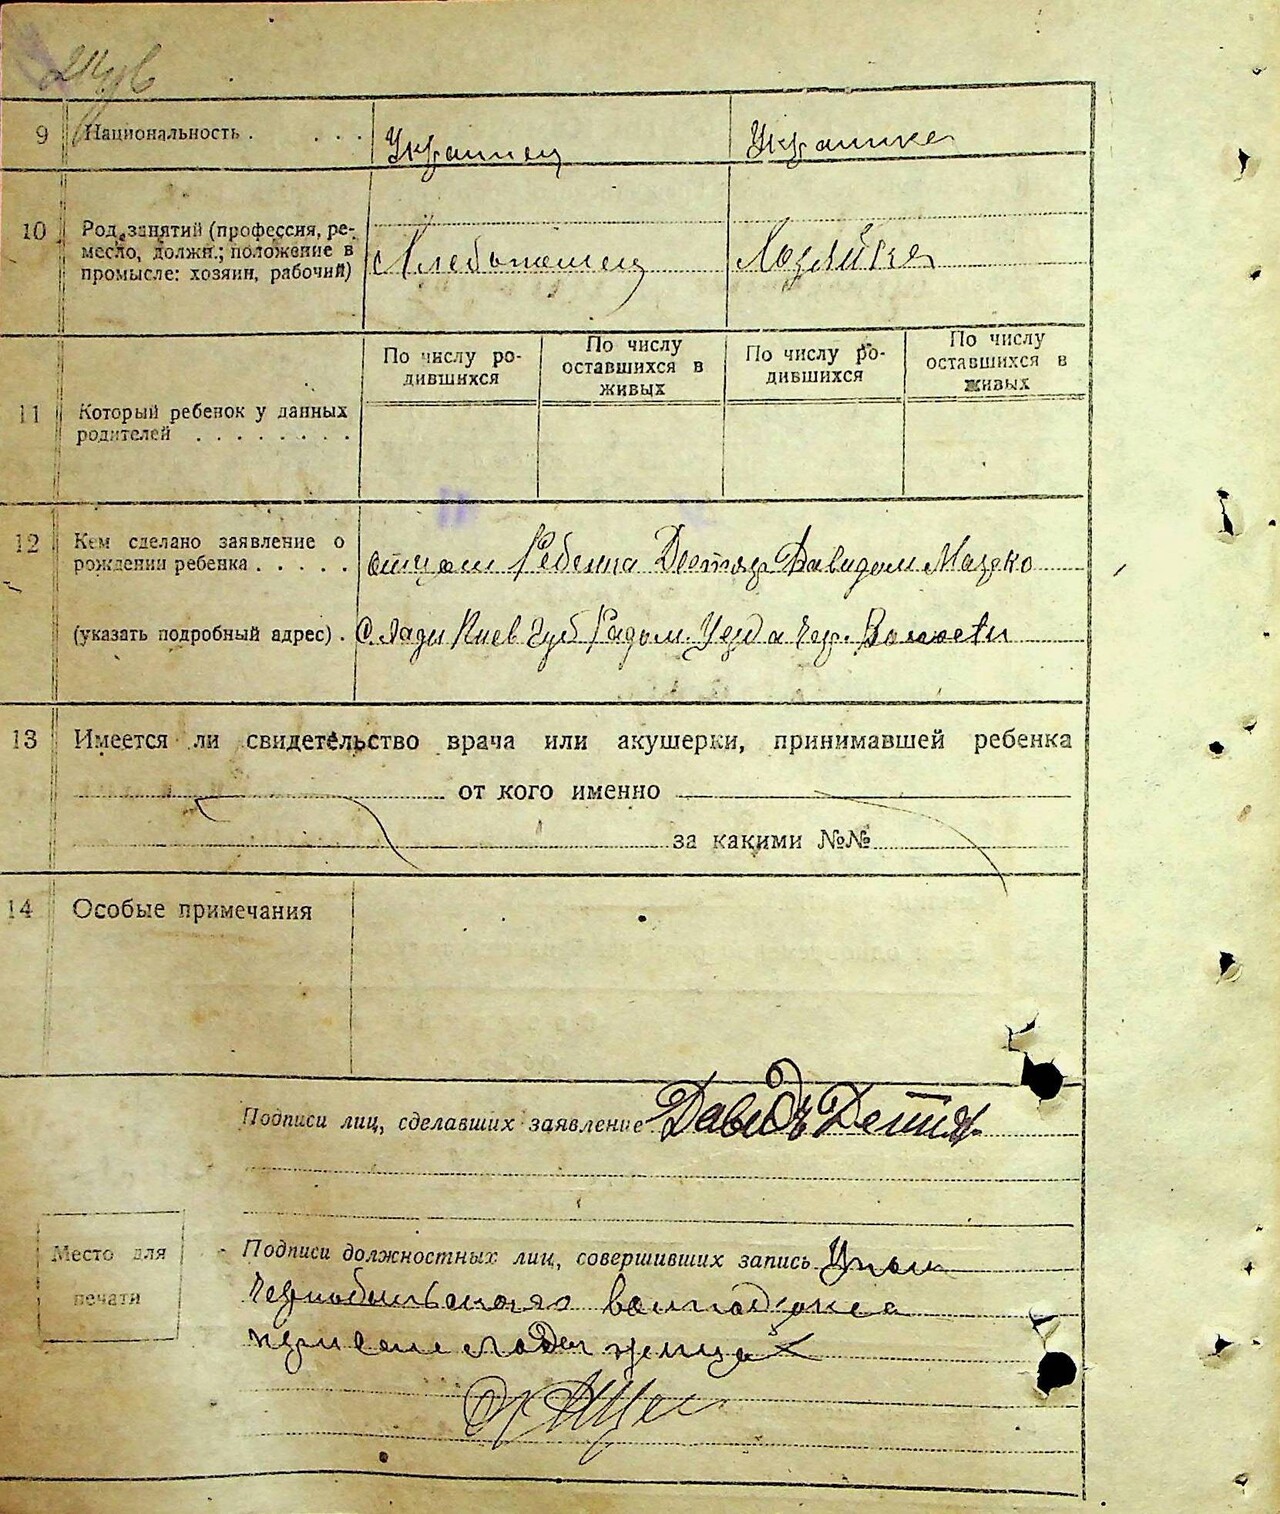 9 Национальность . . . . Украинец Украинка
10 Род занятий (профессия, ре-
месло, должн.; положение в
промысле: хозяин, рабочий) Хлебопашец Хозяйка
По числу ро-
дившихся
По числу
оставшихся в
живых
По числу ро-
дившихся
По числу
оставшихся в
живых
11 Который ребенок у данных
родителей . . . . . . . .
12 Кем сделано заявление о
рождении ребенка . . . . . отцом Ребенка Давидом
(указать подробный адрес) . С. Лади Киев Губ Радом. Уезда Чер. Волости
13 Имеется ли свидетельство врача или акушерки, принимавшей ребенка
от кого именно
за какими №№
14 Особые примечания
Подписи лиц, сделавших заявление Давидъ Детяр
Место для
печати
Подписи должностных лиц, совершивших запись
Чернобыльского
при селе